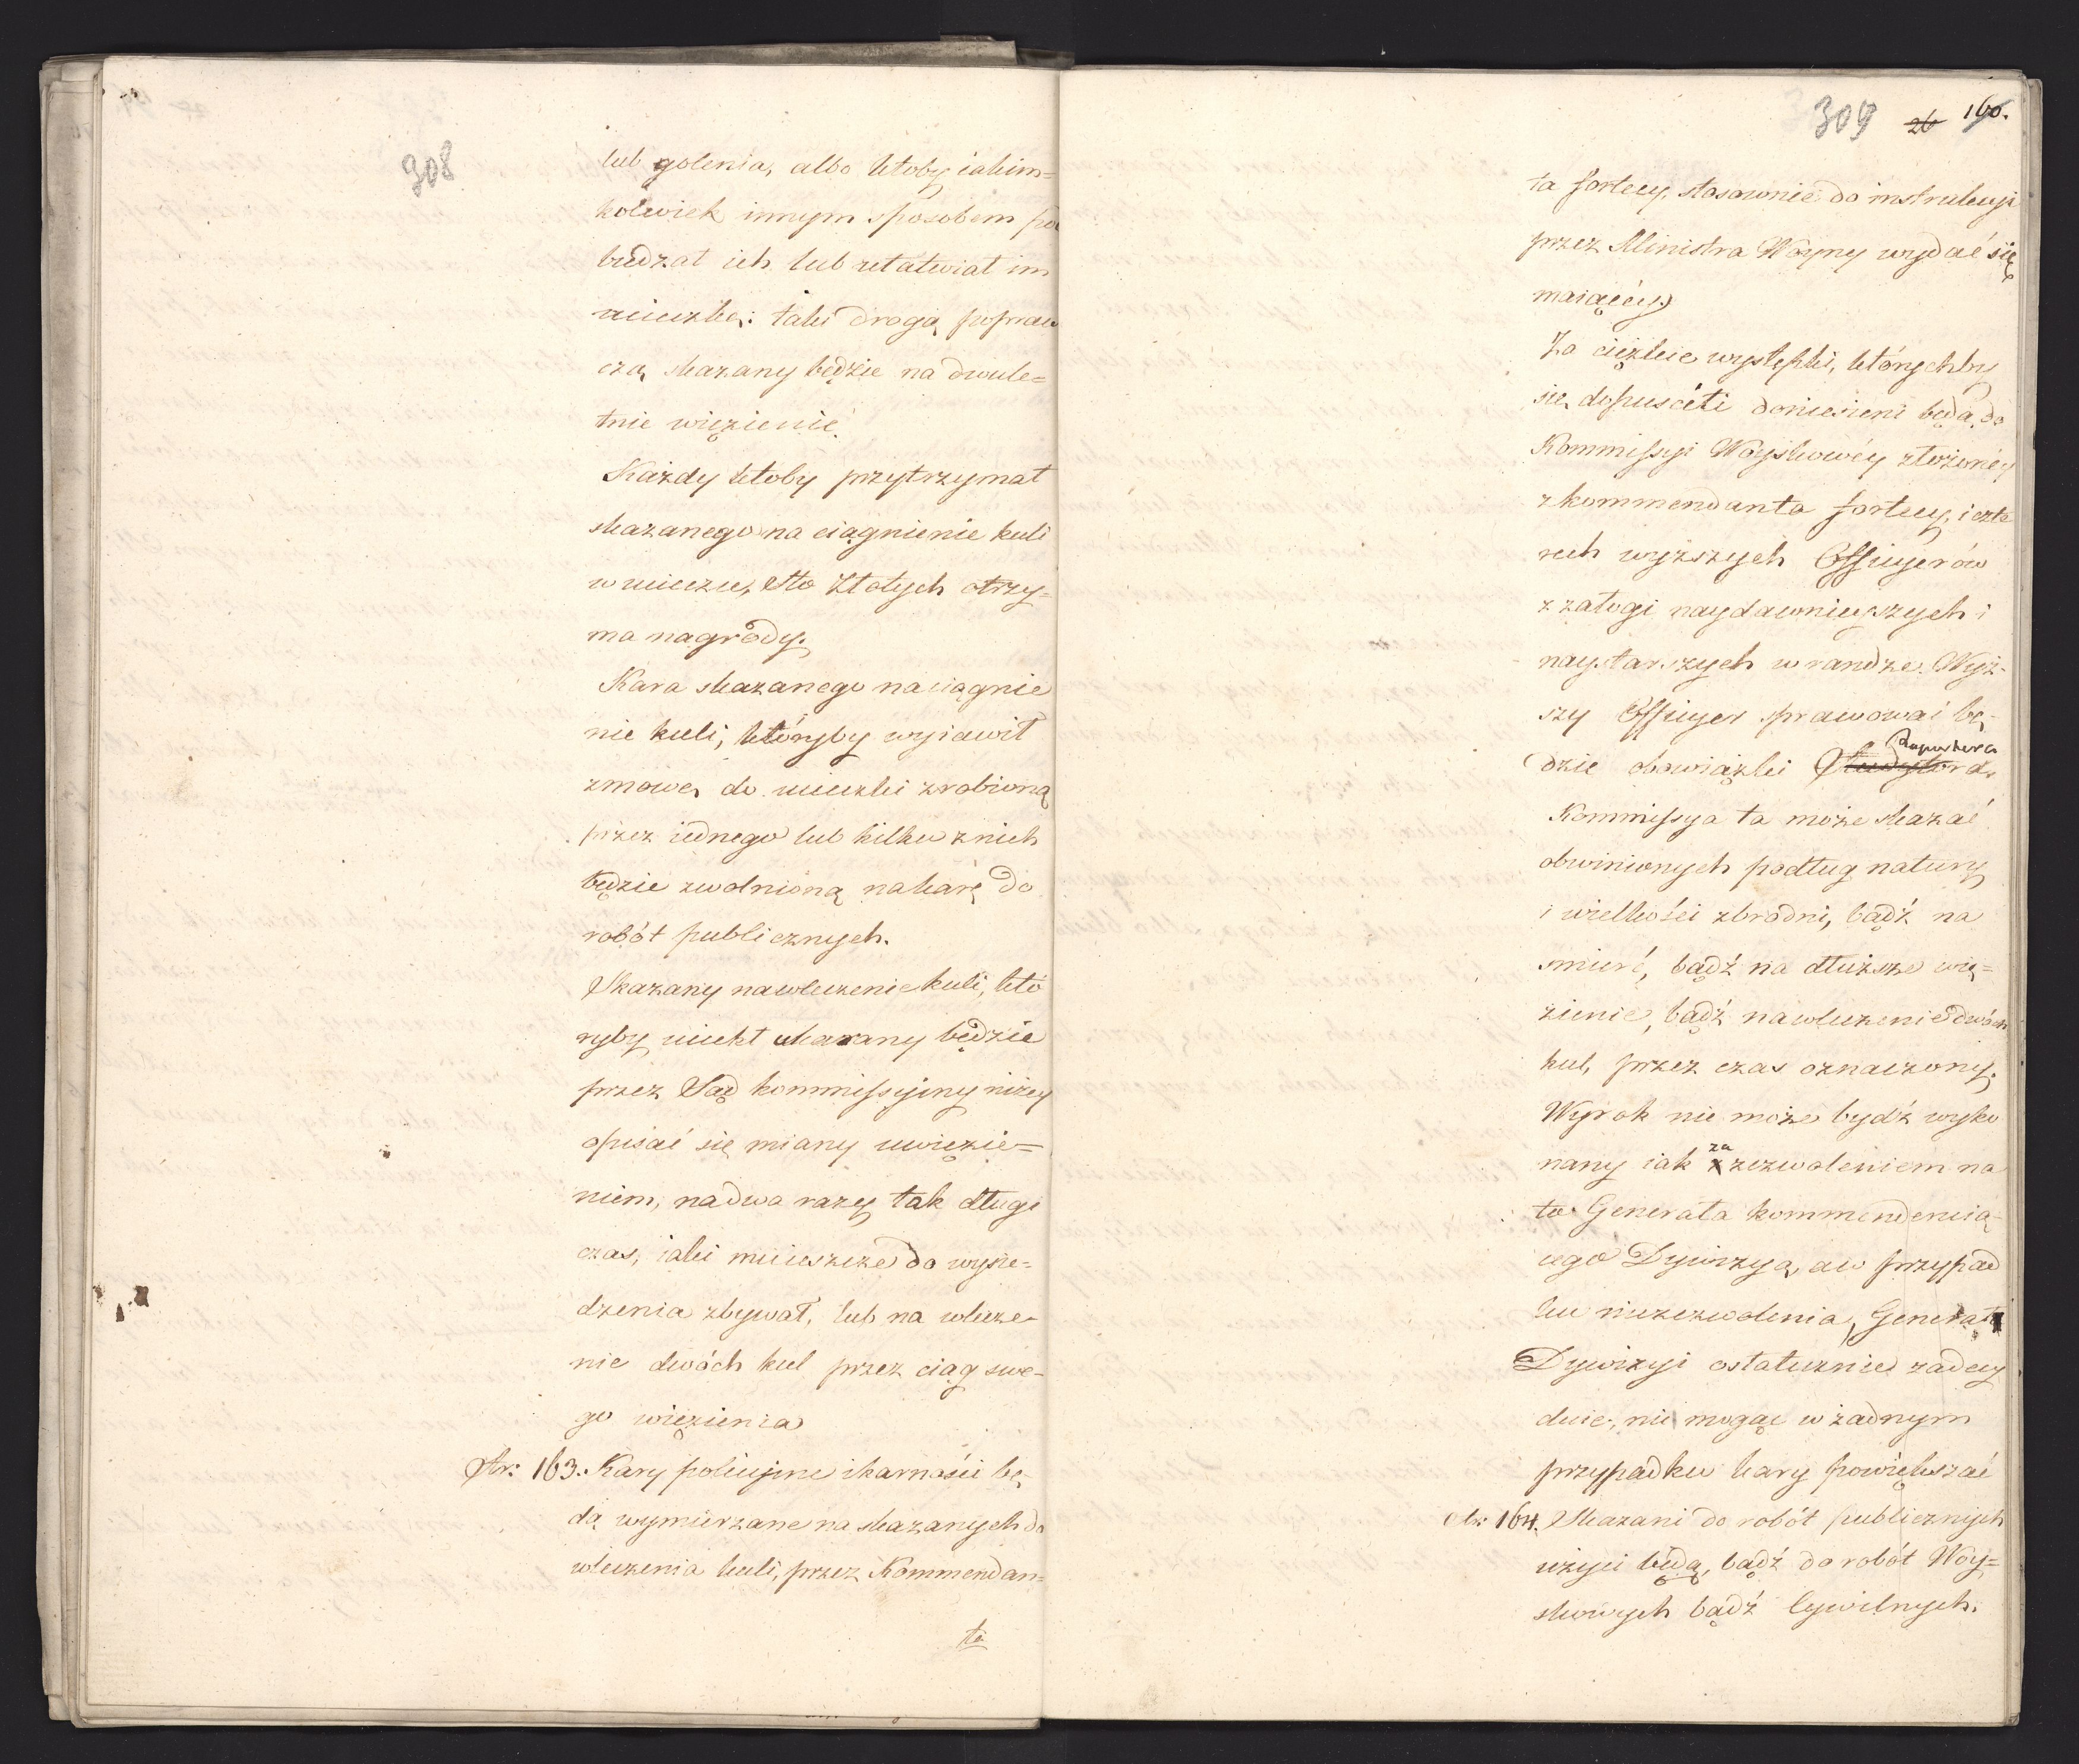 308
lub golenia, albo ktoby iakim=
kolwiek innym sposobem po
budzał ich lub ułatwiał im
ucieczkę: taki drogą popraw
czą skazany będzie na dwule=
tnie więzienie.
Każdy ktoby przytrzymał
skazanego na ciągnienie kuli
w ucieczce, sto Złotych otrzy=
ma nagrody.
Kara skazanego na ciągnie
nie kuli, któryby wyiawił
zmowę do ucieczki zrobioną
przez iednego lub kilku z nich
będzie zwolnioną na karę do
robót publicznych.
Skazany na wleczenie kuli, któ
ryby uciekł ukarany będzie
przez Sąd kommissyiny niżey
opisać się miany uwięzie=
niem, na dwa razy tak długi
czas, iaki mu ieszcze do wysie=
dzenia zbywał, lub na wlecze=
nie dwóch kul przez ciąg swe=
go więzienia
Ar: 163. Kary policyine i karności bę=
dą wymierzane na skazanych do
wleczenia kuli, przez Kommendan=
ta
309 26 160.
ta fortecy, stosownie do instrukcyi
przez Ministra Woyny wydać się
maiącey.
Za ciężkie występki, którychby
się dopuścili doniesieni będą do
Kommissyi Woyskowéy złożonéy
z kommendanta fortecy, i czte
rech wyższych Officyerów
z załogi naydawnieyszych i
naystarszych w randze. Wyż=
szy Officyer sprawować bę=
Raportera
dzie obowiązki Audytora.
Kommissya ta może skazać
obwinionych podług natury
i wielkości zbrodni, bądź na
śmierć, bądź na dłuższe wię=
zienie, bądź na wleczenie dwóch
kul, przez czas oznaczony.
Wyrok nie może bydź wyko
za
nany iak z zezwoleniem na
to Generała kommenderuią=
cego Dywizyą, a w przypad
ku niezezwolenia, Generał
Dywizyi ostatecznie zadecy
duie, nie mogąc w żadnym
przypadku kary powiększać
Ar: 164. Skazani do robót publicznych
użyci będą, bądź do robót Woy=
skowych bądź Cywilnych.